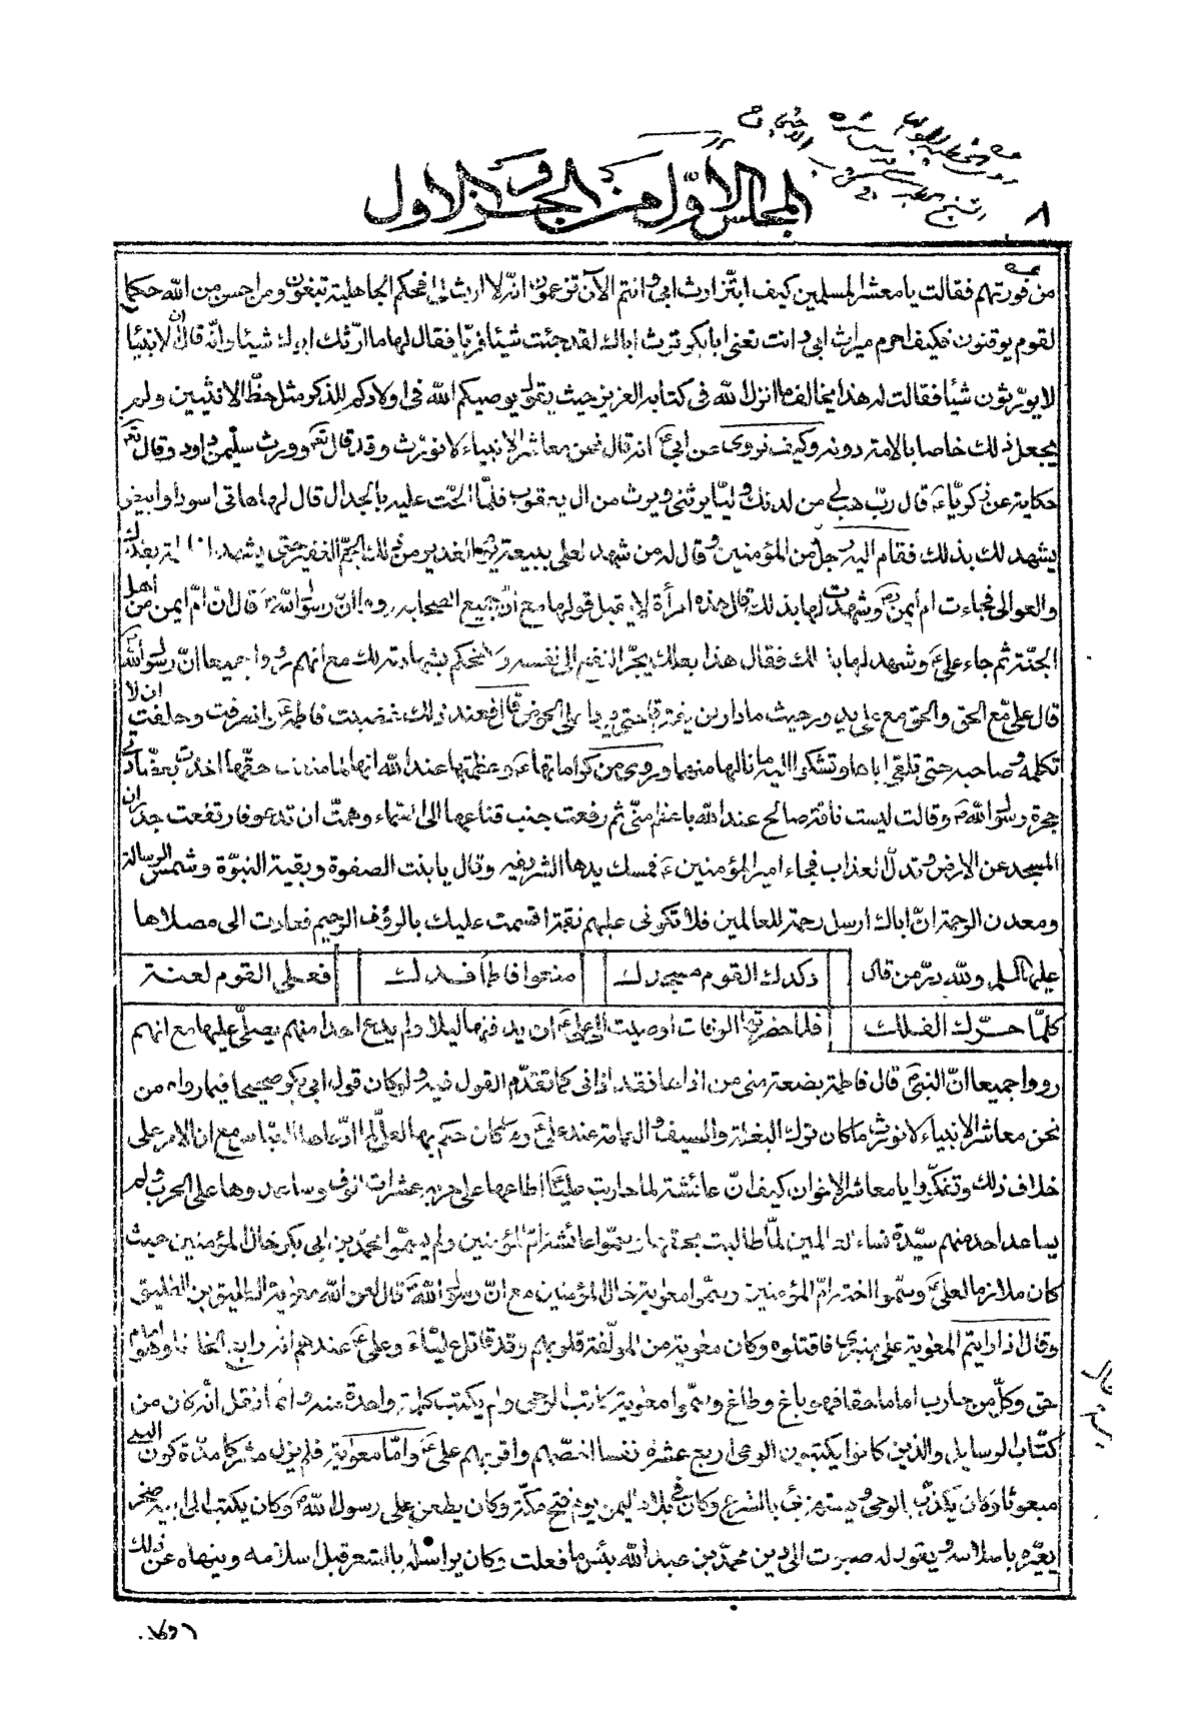 ٨
المجلس الاوّل من الجزو الاول
من فورتهم فقالت يا معشر المسلمين كيف ابتّز ارث ابى وانتم الآن تزعمون انّه لا ارث لى افحكم الجاهلية تبغون ومن احسن من الله حكما
لقوم يوقنون فكيف احرم ميراث ابى وانت تعنى ابا بكر ترث اباك لقد جئت شيئا فريّا فقال لها ما ارّثك ابوك شيئا وانّه قال انّ الانبياء
لا يورّثون شيئا فقالت له هذا يخالف ما انزل الله فى كتابه العزيز حيث يقول يوصيكم الله فى اولادكم للذكر مثل حظّ الانثيين ولم
يجعل ذلك خاصا بالامة دونه وكيف تروى عن ابىؐ انه قال نحن معاشر الانبياء لا نورّث وقد قال تعۤ وورث سليمن داود وقال تعۤ
حكاية عن زكريّا عۤ قال ربّ هب لى من لدنك وليّا يرثنى ويرث من ال يعقوب فلمّا الحّت عليه بالجدال قال لها هاتى اسود او ابيض
يشهد لك بذلك فقام اليه رجل من المؤمنين وقال له من شهد لعلى ببيعة يوم الغدير من ذلك الجمّ الغفير حتى يشهد لابنته بفدك
والعوالى فجاءت ام أيمن وشهدت لها بذلك قال هذه امرأة لا يقبل قولها مع انّ جميع الصحابه رووا انّ رسول الله صۤ قال ان امّ ايمن من اهل
الجنّة ثم جاء علىّ عۤ وشهد لها بذلك فقال هذا بعلك يجرّ النفع الى نفسه ولا نحكم بشهادته لك مع انهم رووا جميعا انّ رسول الله
قال علىّ مع الحق والحق مع على يدور حيث ما دار لن يفترقا حتى يردا على الحوض فعند ذلك غضبت فاطمة عۤ وانصرفت وحلفت ان لا
تكلمه وصاحبه حتى تلقى اباها وتشكو اليه ما نالها منهما وروى من كراماتها عۤ وعظمتها عند الله انها لما منعت حقّها اخذت بعضادتى
حجرة رسول الله صۤ وقالت ليست ناقة صالح عند الله باعظم منّى ثم رفعت جنب قناعها الى السّماء وهمّت ان تدعو فارتفعت جدران
المسجد عن الارض وتدلّى العذاب فجاء امير المؤمنين عۤ فمسك يدها الشريفه وقال يا بنت الصفوة وبقية النبوّة وشمس الرسالة
ومعدن الرحمة انّ اباك ارسل رحمة للعالمين فلا تكونى عليهم نقمة اقسمت عليك بالرؤف الرحيم فعادت الى مصلاها
عليها السلم ولله درّ من قال دكدك القوم مسجدك منعوا فاطما فدك فعلى القوم لعنة
كلّما حرّك الفلك فلما حضرتها الوفات اوصيت الى علىّ عۤ ان يدفنها ليلا ولم يدع احدا منهم يصلّى عليها مع انهم
رووا جميعا انّ النبىّ صۤ قال فاطمة بضعة منى من اذاها فقد اذانى كما تقدّم القول فيه ولو كان قول ابى بكر صحيحا فيما رواه من
نحن معاشر الانبياء لا نورّث ما كان ترك البغلة والسيف والعمامة عند علىّ عۤ ولما كان حكم بها لعلىّ لما ادّعاها العبّاس مع ان الامر على
خلاف ذلك وتفكّروا يا معاشر الاخوان كيف انّ عائشة لما حاربت عليّا اطاعها على حربه عشرات الوف وساعدوها على الحرب ولم
يساعد احد منهم سيّدة نساء العالمين لمّا طالبت بحقها وسمّوا عائشة امّ المؤمنين ولم يسمّوا محمّد بن ابى بكر خال المؤمنين حيث
كان ملازما لعلىّ عۤ وسمّوا اخته امّ المؤمنين وسمّوا معوية خال المؤمنين مع انّ رسول الله صۤ قال لعن الله معوية الطليق بن الطليق
وقال اذا رايتم المعوية على منبرى فاقتلوه وكان معوية من المؤلّفة قلوبهم وقد قاتل عليّا عۤ وعلىّ عۤ عندهم انه رابع الخلفاء وهو امام
حق وكلّ من حارب اماما حقا فهو باغ وطاغ وسمّوا معوية كاتب الوحى ولم يكتب كلمة واحدة منه وانّما نقل انّه كان من
كتّاب الوسايل والذين كانوا يكتبون الوحى اربع عشرة نفسا اخصّهم واقربهم علىّ عۤ وامّا معوية فلم يزل مشركا مدّة كون النبى
مبعوثا وكان يكذّب بالوحى ويستهزئ بالشرع وكان فى بلاد اليمن يوم فتح مكّة وكان يطعن على رسول الله صۤ وكان يكتب الى ابيه صخر
يعيّره باسلامه ويقول له صبوت الى دين محمّد بن عبد الله بئس ما فعلت وكان يراسله بالشعر قبل اسلامه وينهاه عن ذلك